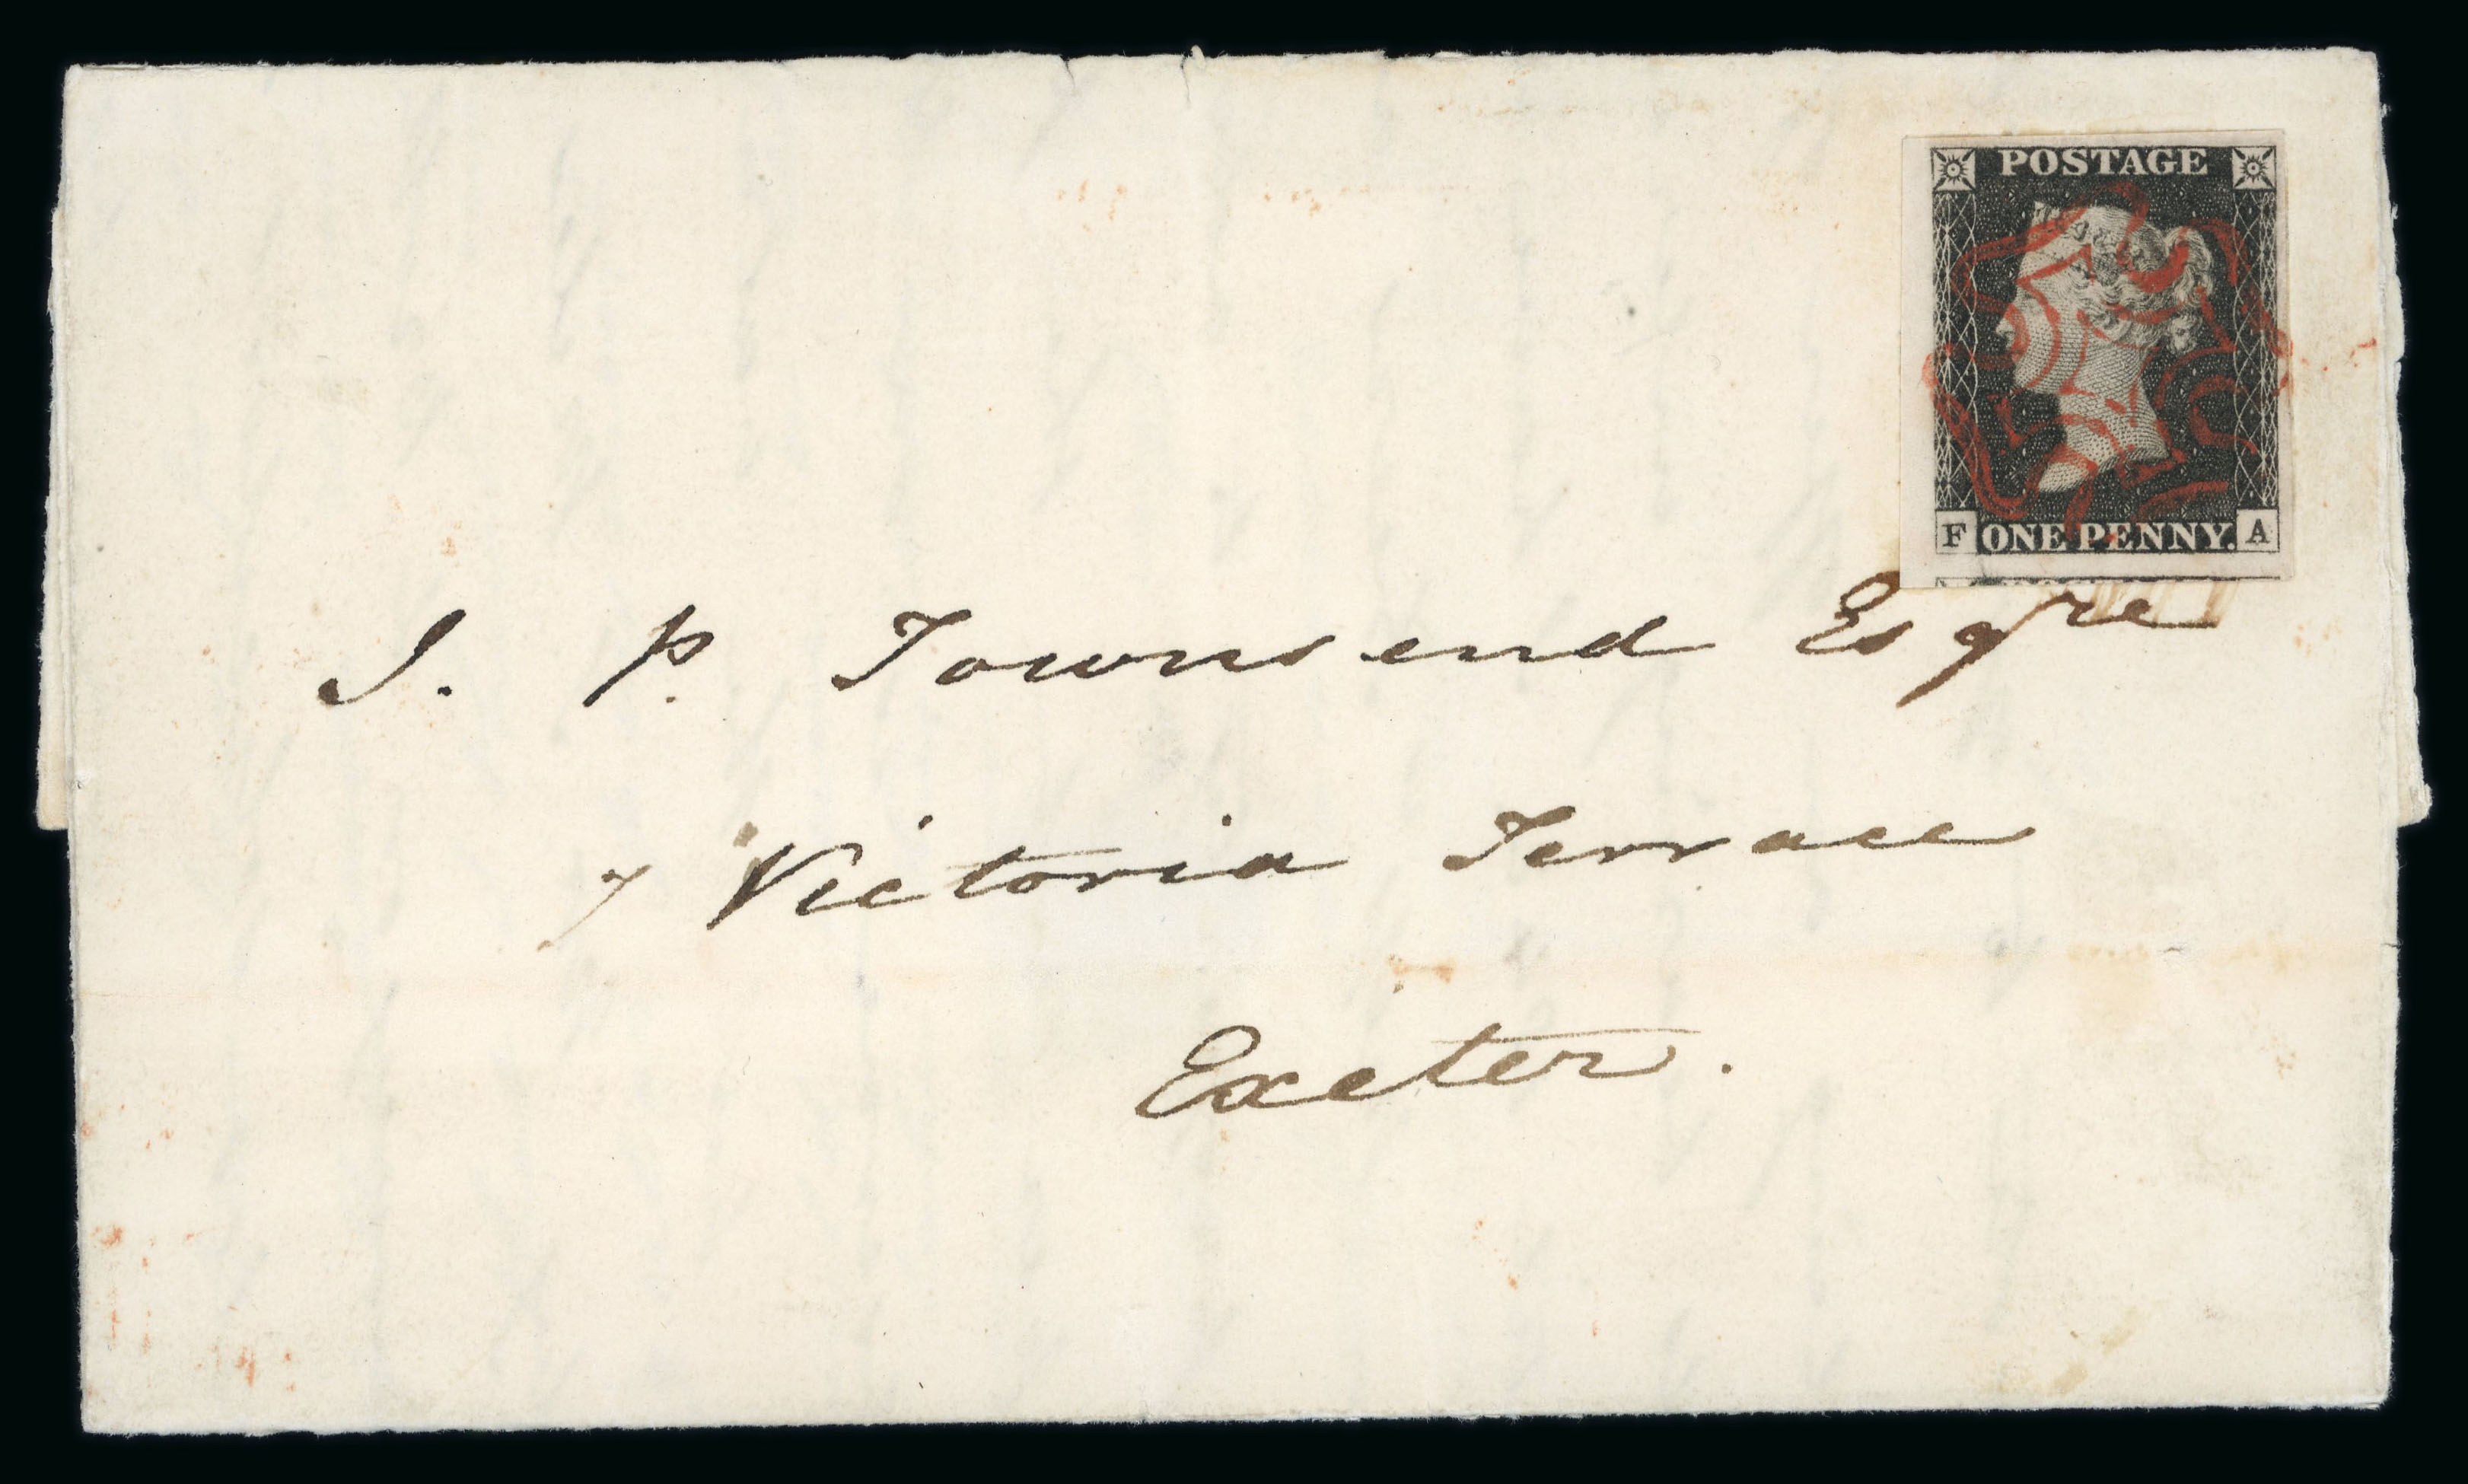 POSTAGE
F ONE PENNY. A
J. P. Townsend Esqre
7 Victoria Terrace
Exeter.